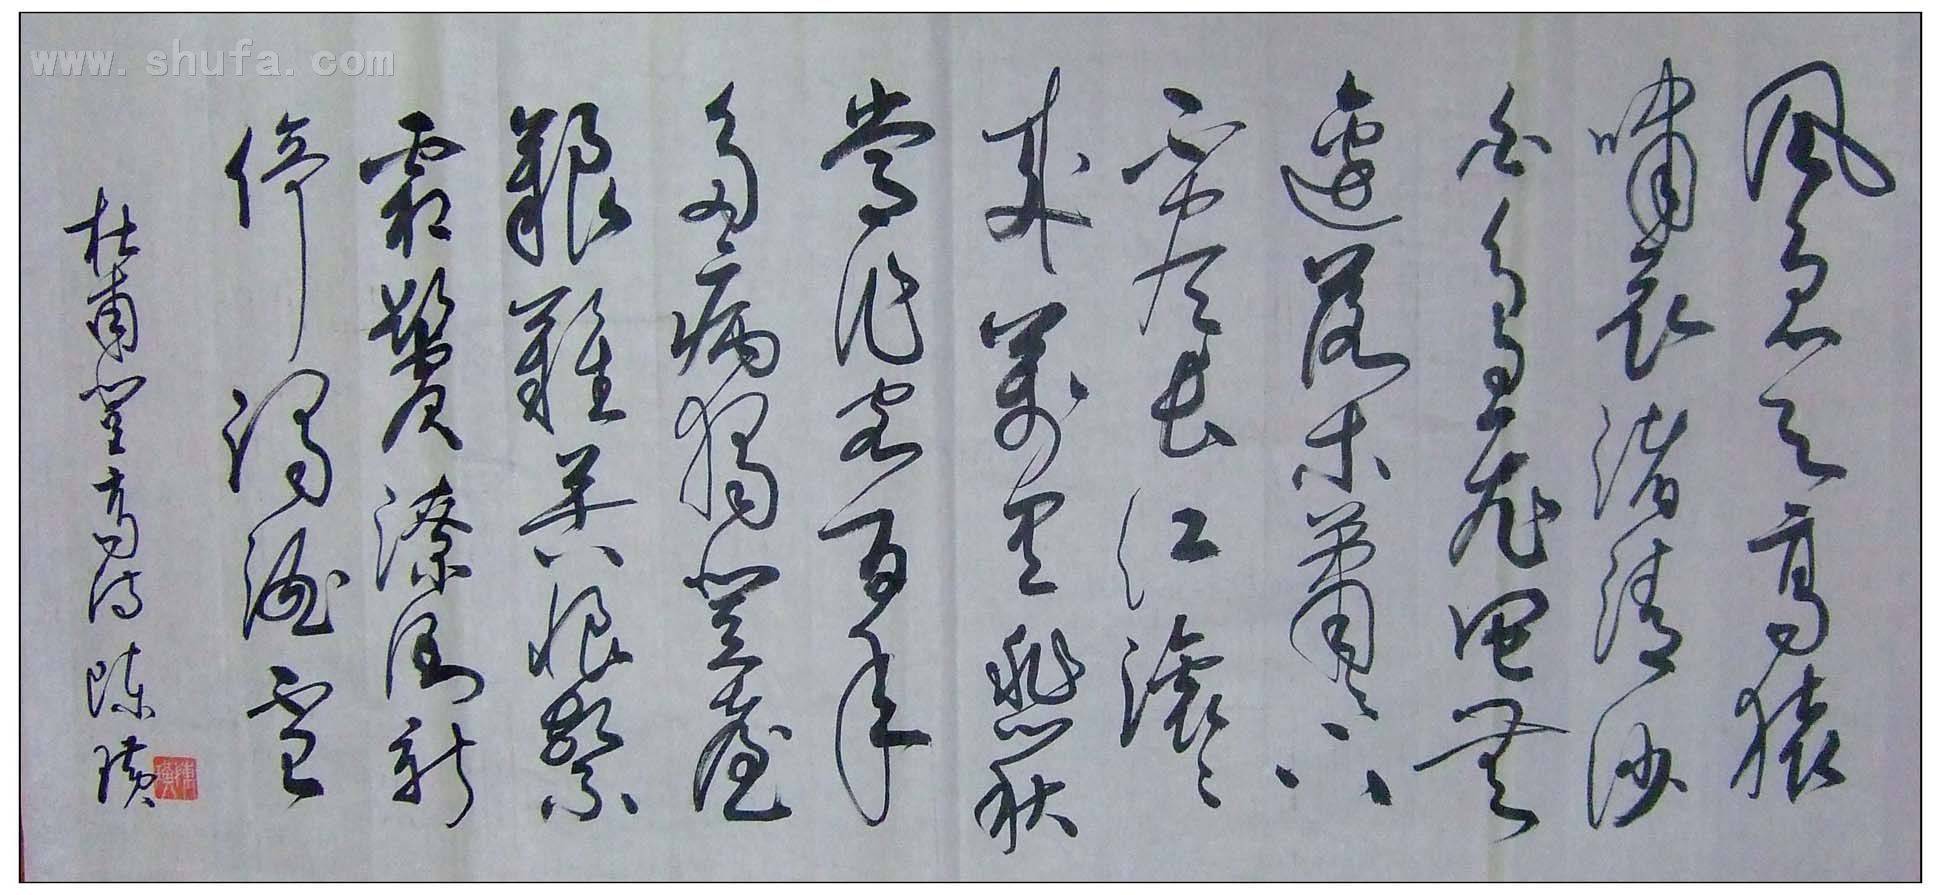 www.shufa.com
風急天高猿
嘯哀渚清沙
白鳥飛囬無
邊落木蕭〻下
不盡長江滾〻
來萬里悲秋
常作客百年
多病獨登臺
艱難苦恨繁
霜鬢潦倒新
停濁酒盃
杜甫登高詩 陳璜